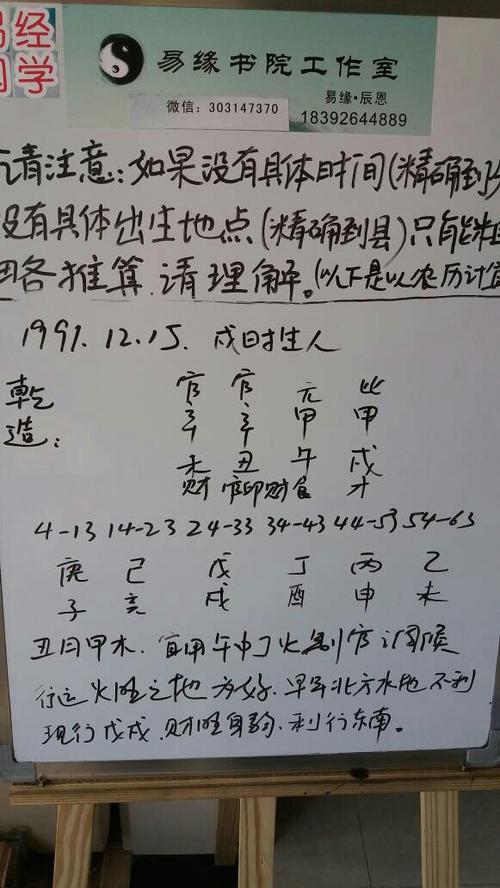 易经
同学
易缘书院工作室
微信：303147370
易缘·辰恩
18392644889
请注意：如果没有具体时间(精确到
没有具体出生地点(精确到县)只能粗
略推算.请理解。(以下是以农历计算
1991.12.15. 戌时生人
官 官 元 比
乾 辛 辛 甲 甲
造：
未 丑 午 戌
财 官印财 食 才
4-13 14-23 24-33 34-43 44-53 54-63
庚 己 戊 丁 丙 乙
子 亥 戌 酉 申 未
丑月甲木.宜用午中丁火制官调候
行运火旺之地为好.早年北方水地不利
现行戊戌.财旺身弱.利行东南。